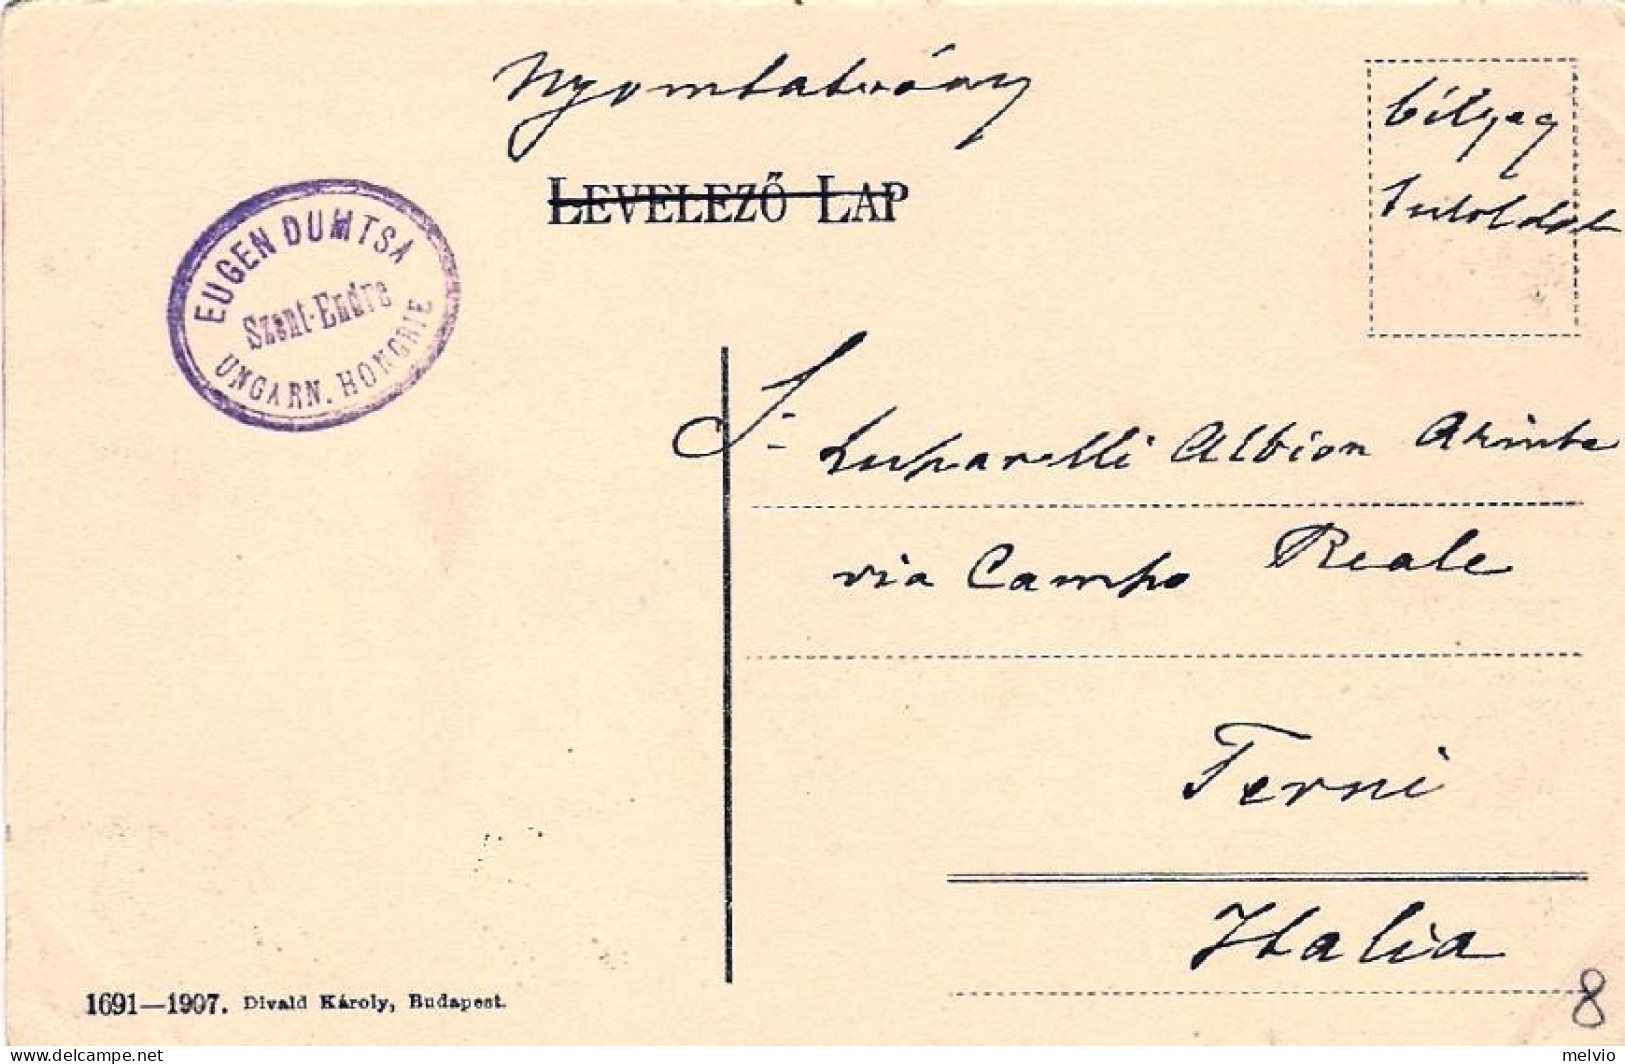 Nyomtatvány
LEVELEZŐ LAP
bélyeg
tuloldalt
EUGEN DUMTSA
Szent-Endre
UNGARN. HONGRIE
S- Luparelli Albion
via Campo Reale
Terni
Italia
1691—1907. Divald Károly, Budapest.
8
melvio